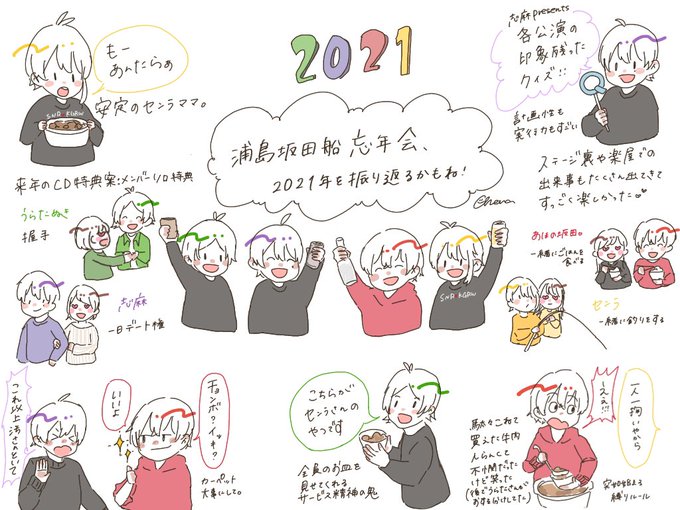 2021
もー
あんたらぁ
安定のセンラママ。
SNR KGRW
志麻presents
各公演の
印象残った
クイズ!!
計画性も
実行力もすごい
ステージ裏や楽屋での
出来事もたくさん出てきて
すっごく楽しかった
浦島坂田船 忘年会、
2021年を振り返るかもね!
来年のCD特典案:メンバーソロ特典
うらたぬき
握手
志麻
一日デート権
あほの坂田。
一緒にごはんを
食べる
センラ
一緒に釣りをする
SNR KGRW
これ以上汚さんといて
いいよ
チョンボ?イッキ?
カーペット
大事にして。
こちらが
センラさんの
やつです
全員のお皿を
見せてくれる
サービス精神の鬼
一人一掬いやから
しえぇ!!!
駄々こねて
買えた牛肉
一人らんくて
不憫だった
けど笑った
(後でうらたさんが
おすそ分けしてた)
縛りルール